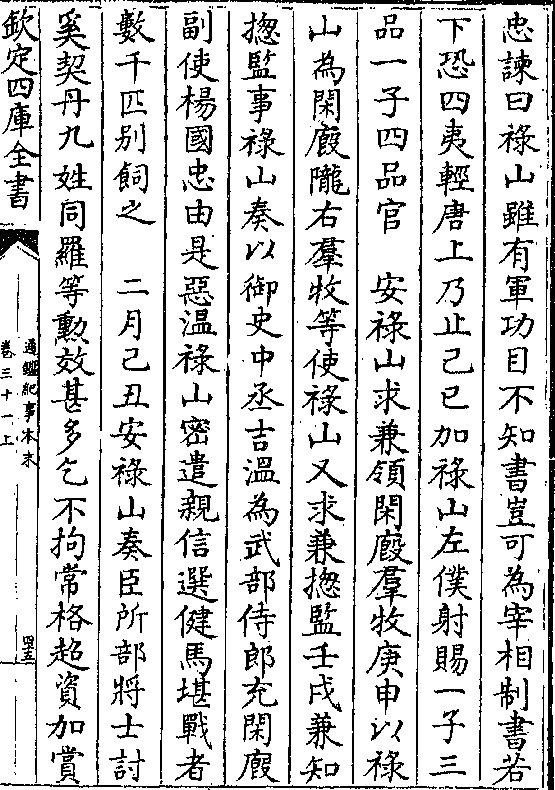 忠諫曰祿山雖有軍功目不知書豈可為宰相制書若
下恐四夷輕唐上乃止己巳加祿山左僕射賜一子三
品一子四品官　安祿山求兼領閑廐羣牧庚申以祿
山為閑廐隴右羣牧等使祿山又求兼揔監壬戌兼知
揔監事祿山奏以御史中丞吉温為武部侍郎充閑廐
副使楊國忠由是惡温祿山密遣親信選健馬堪戰者
數千匹别飼之　二月己丑安祿山奏臣所部將士討
奚契丹九姓同羅等勲效甚多乞不拘常格超資加賞
欽定四庫全書
通鑑紀事本末
卷三十一上
四十五